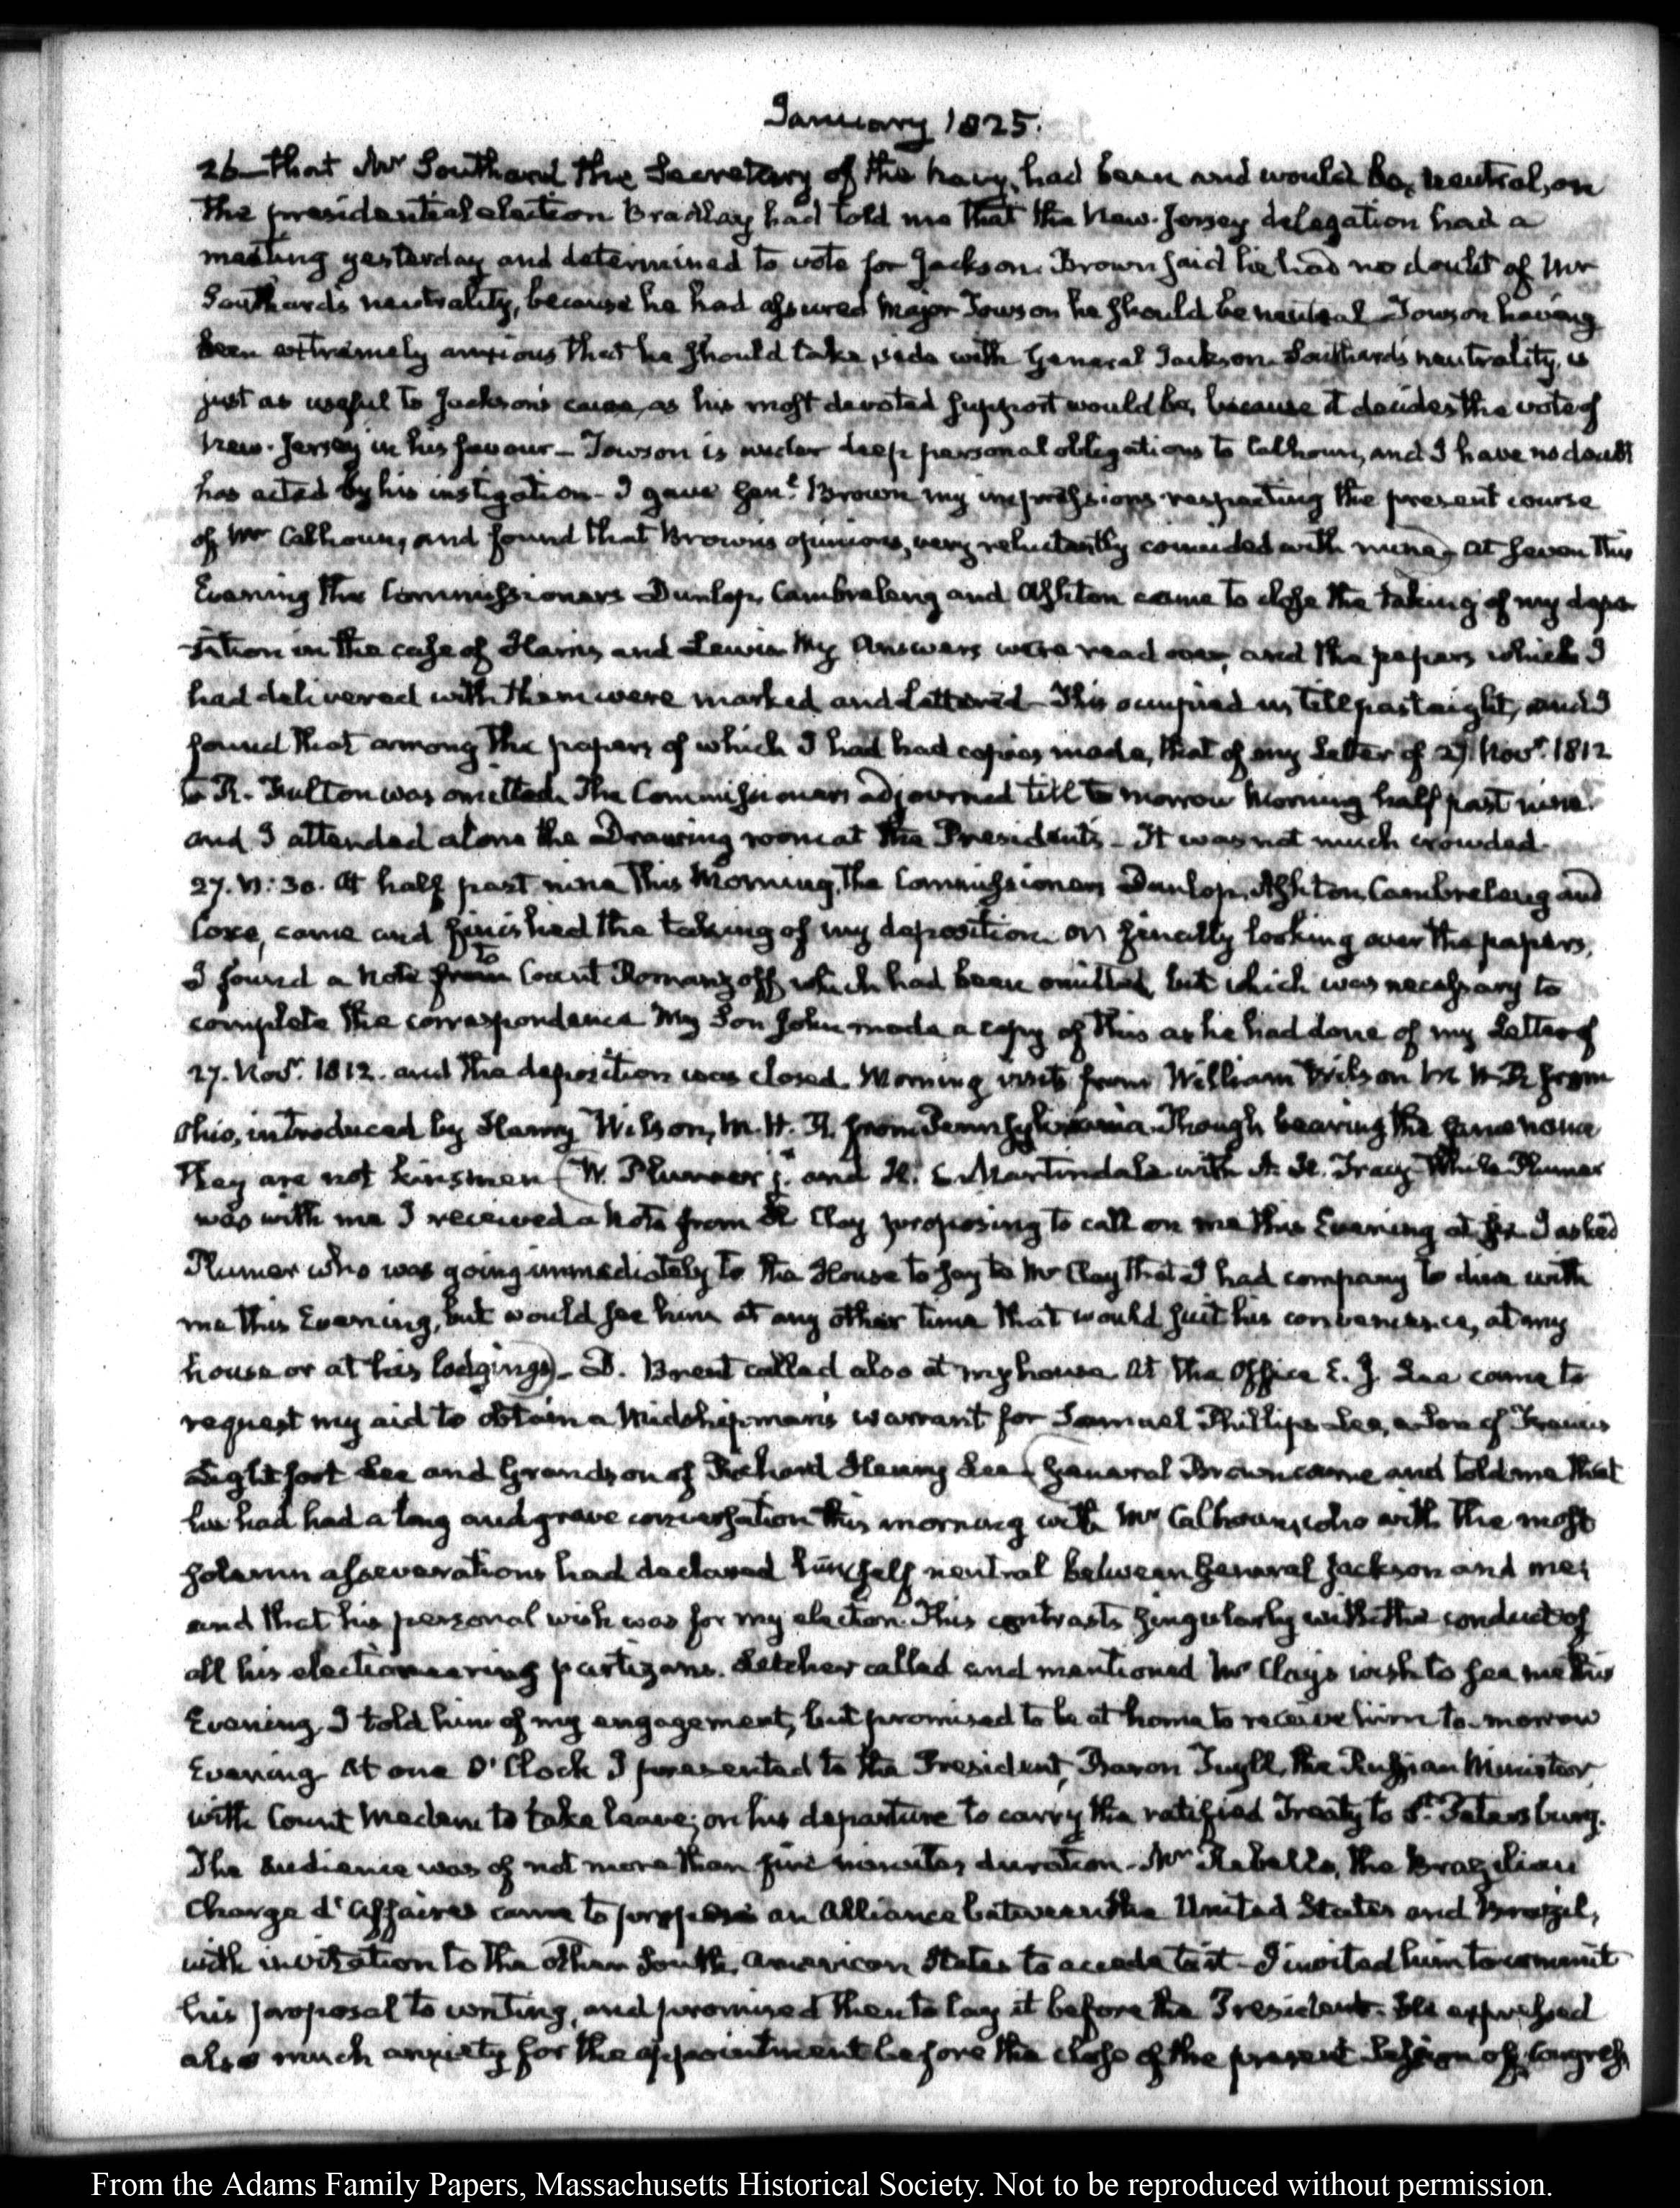 January 1825.
26— that Mr Southard the Secretary of the Navy, had been and would be, neutral, on
the presidential election Bradley had told me that the New-Jersey delegation had a
meeting yesterday and determined to vote for Jackson. Brown said he had no doubt of Mr
Southards neutrality, because he had assured Major Towson he should be neutral Towson having
been extremely anxious that he should take side with General Jackson. Southard's neutrality, is
just as useful to Jackson's cause, as his most devoted support would be, because it decides the vote of
New-Jersey in his favour— Towson is under deep personal obligations to Calhoun, and I have no doubt
has acted by his instigation— I gave Genl Brown my impressions respecting the present course
of Mr Calhoun, and found that Brown's opinions, very reluctantly coincided with mine— At seven this
Evening the Commissioners Dunlop, Cambreleng and Ashton came to close the taking of my depo-
sition in the case of Harris and Lewis My Answers were read over, and the papers which I
had delivered with them were marked and lettered— This occupied us till past eight, and I
found that among the papers of which I had had copies made, that of my Letter of 27. Novr. 1812
to R. Fulton was omitted. The Commissioners adjourned till to morrow Morning half past nine.
and I attended alone the Drawing room at the Presidents— It was not much crowded.
27. VI: 30. At half past nine this Morning, the Commissioners Dunlop, Ashton, Cambreleng and
Coxe, came and finished the taking of my deposition. On finally looking over the papers,
I found a Note from to Count Romanzoff which had been omitted, but which was necessary to
complete the correspondence My Son John made a copy of this as he had done of my Letter of
27. Novr. 1812. and the deposition was closed. Morning visits from William Wilson M. H. R. from
Ohio, introduced by Harry Wilson, M. H. R. from Pennsylvania. Though bearing the same name
they are not kinsmen— W. Plumer jr. and H. C. Martindale with A. H. Tracy. While Plumer
was with me I received a Note from H Clay proposing to call on me this Evening at six I asked
Plumer who was going immediately to the House to say to Mr Clay that I had company to dine with
me this Evening, but would see him at any other time that would suit his convenience, at my
house or at his lodgings)— D. Brent called also at my house At the Office E. J. Lee came to
request my aid to obtain a Midshipman's warrant for Samuel Phillips Lee, a Son of Francis
Lightfoot Lee and Grandson of Richard Henry Lee— General Brown came and told me that
he had had a long and grave conversation this morning with Mr Calhoun, who with the most
solemn asseverations had declared himself neutral between General Jackson and me;
and that his personal wish was for my election. This contrasts singularly with the conduct of
all his electioneering partizans. Letcher called and mentioned Mr Clay's wish to see me this
Evening. I told him of my engagement, but promised to be at home to receive him to-morrow
Evening. At one O'Clock I presented to the President, Baron Tuyll, the Russian Minister,
with Count Medem to take leave; on his departure to carry the ratified Treaty to St. Petersburg.
The Audience was of not more than five minutes duration— Mr Rebello, the Brazilian
Charge d'Affaires came to propose an Alliance between the United States and Brazil,
with invitation to the other South-American States to accede to it— I invited him to commit
his proposal to writing, and promised then to lay it before the President. He expressed
also much anxiety for the appointment before the close of the present Session of Congress
From the Adams Family Papers, Massachusetts Historical Society. Not to be reproduced without permission.